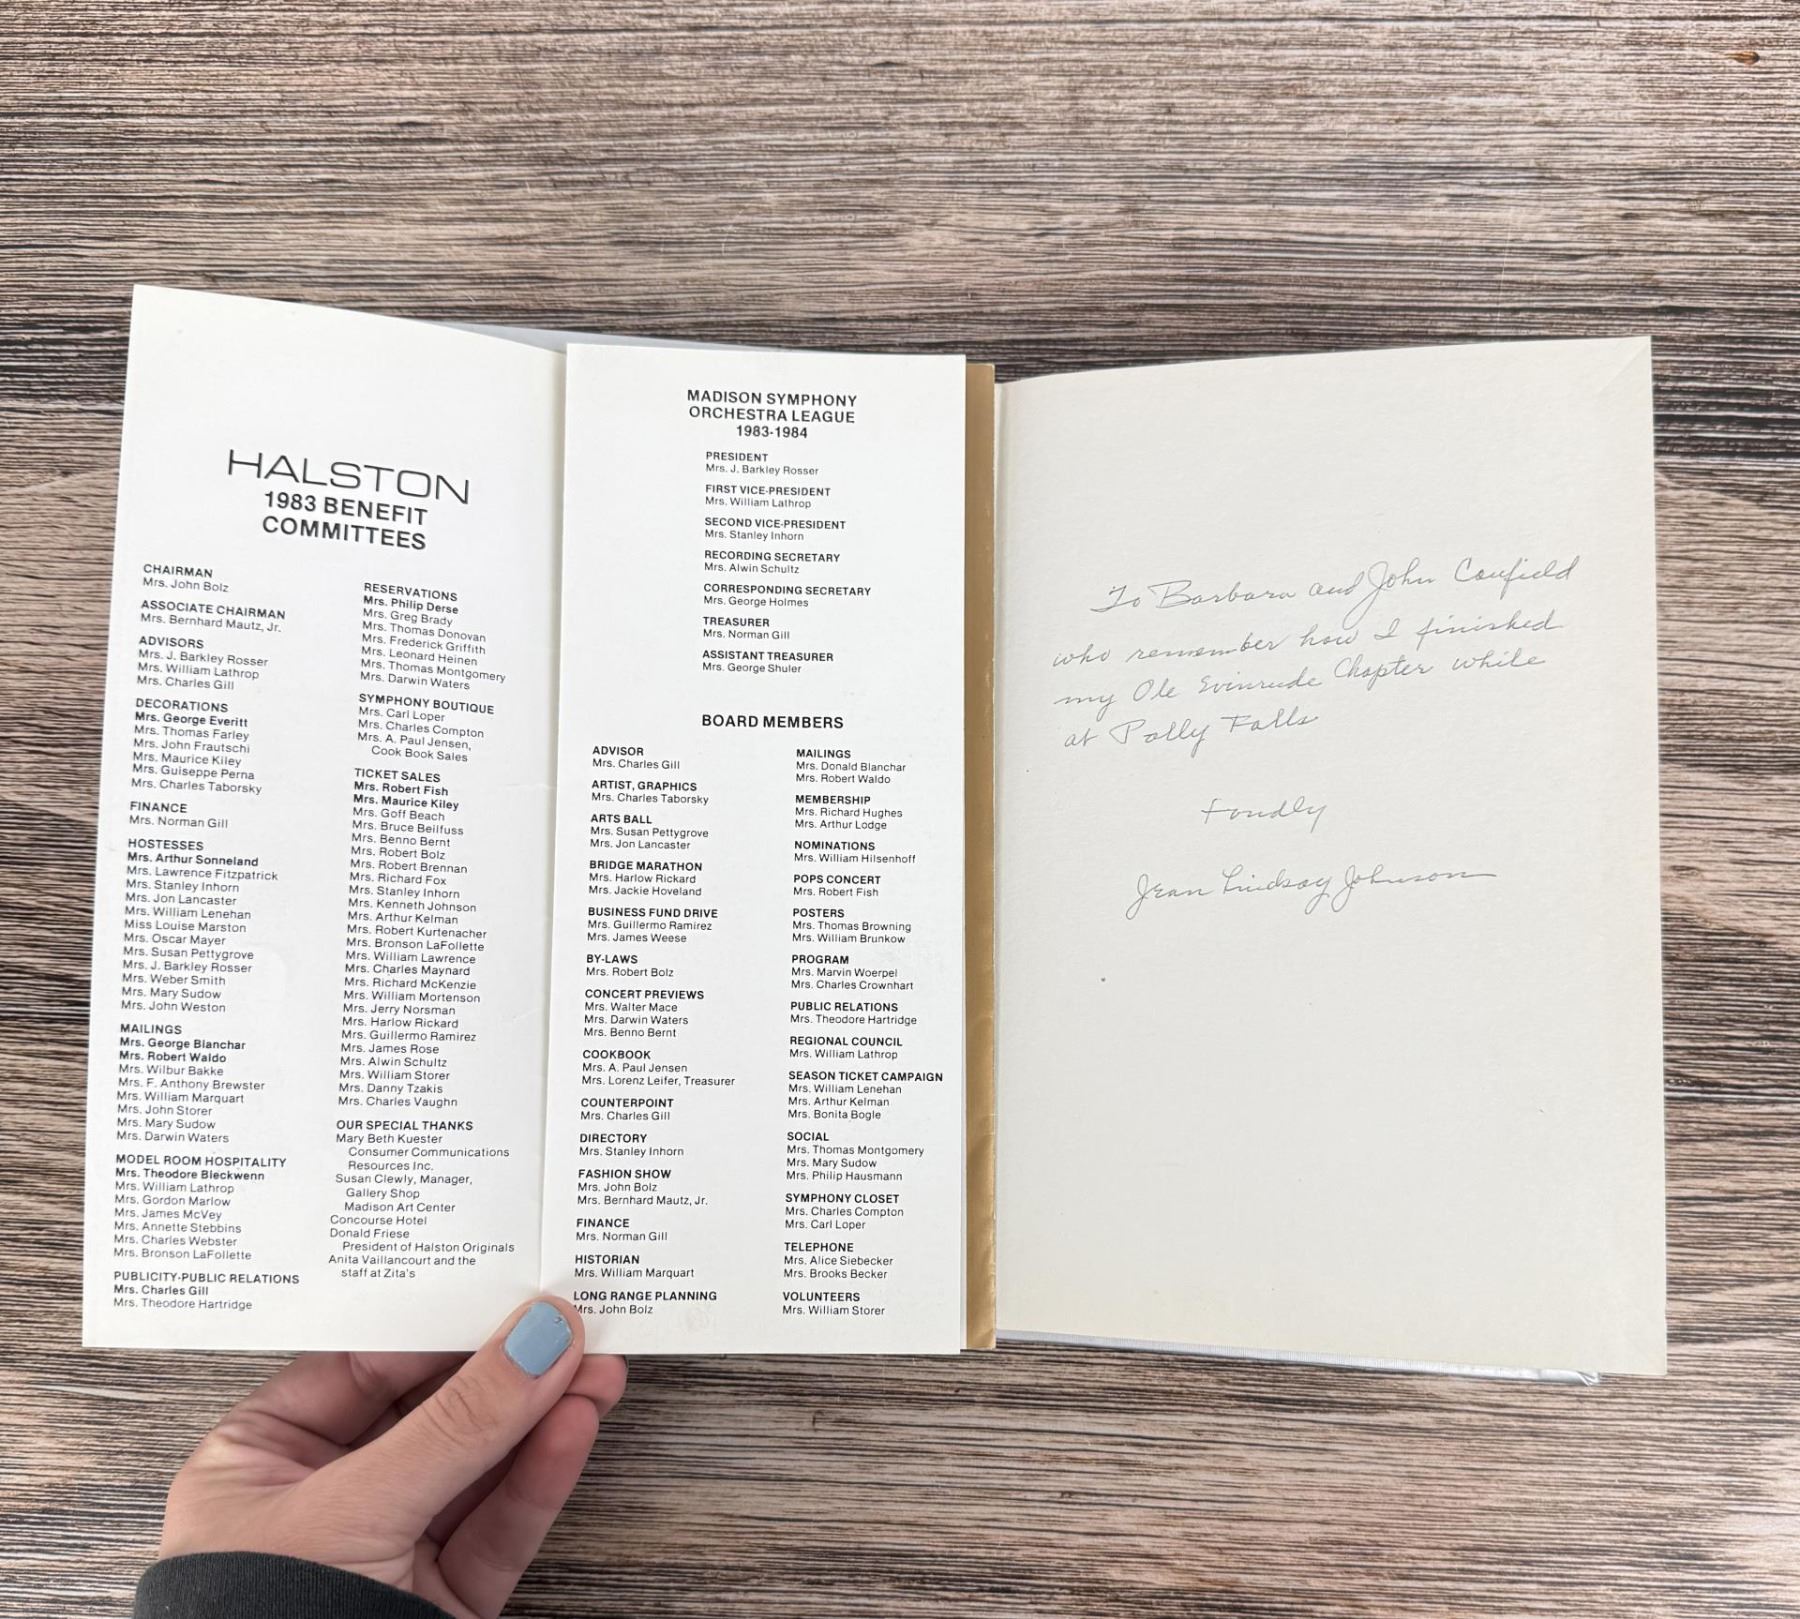 HALSTON
1983 BENEFIT
COMMITTEES
CHAIRMAN
Mrs. John Bolz
ASSOCIATE CHAIRMAN
Mrs. Bernhard Mautz, Jr.
ADVISORS
Mrs. J. Barkley Rosser
Mrs. William Lathrop
Mrs. Charles Gill
DECORATIONS
Mrs. George Everitt
Mrs. Thomas Farley
Mrs. John Frautschi
Mrs. Maurice Kiley
Mrs. Guiseppe Perna
Mrs. Charles Taborsky
FINANCE
Mrs. Norman Gill
HOSTESSES
Mrs. Arthur Sonneland
Mrs. Lawrence Fitzpatrick
Mrs. Stanley Inhorn
Mrs. Jon Lancaster
Mrs. William Lenehan
Miss Louise Marston
Mrs. Oscar Mayer
Mrs. Susan Pettygrove
Mrs. J. Barkley Rosser
Mrs. Weber Smith
Mrs. Mary Sudow
Mrs. John Weston
MAILINGS
Mrs. George Blanchar
Mrs. Robert Waldo
Mrs. Wilbur Bakke
Mrs. F. Anthony Brewster
Mrs. William Marquart
Mrs. John Storer
Mrs. Mary Sudow
Mrs. Darwin Waters
MODEL ROOM HOSPITALITY
Mrs. Theodore Bleckwenn
Mrs. William Lathrop
Mrs. Gordon Marlow
Mrs. James McVey
Mrs. Annette Stebbins
Mrs. Charles Webster
Mrs. Bronson LaFollette
PUBLICITY-PUBLIC RELATIONS
Mrs. Charles Gill
Mrs. Theodore Hartridge
RESERVATIONS
Mrs. Philip Derse
Mrs. Greg Brady
Mrs. Thomas Donovan
Mrs. Frederick Griffith
Mrs. Leonard Heinen
Mrs. Thomas Montgomery
Mrs. Darwin Waters
SYMPHONY BOUTIQUE
Mrs. Carl Loper
Mrs. Charles Compton
Mrs. A. Paul Jensen,
Cook Book Sales
TICKET SALES
Mrs. Robert Fish
Mrs. Maurice Kiley
Mrs. Goff Beach
Mrs. Bruce Beilfuss
Mrs. Benno Bernt
Mrs. Robert Bolz
Mrs. Robert Brennan
Mrs. Richard Fox
Mrs. Stanley Inhorn
Mrs. Kenneth Johnson
Mrs. Arthur Kelman
Mrs. Robert Kurtenacher
Mrs. Bronson LaFollette
Mrs. William Lawrence
Mrs. Charles Maynard
Mrs. Richard McKenzie
Mrs. William Mortenson
Mrs. Jerry Norsman
Mrs. Harlow Rickard
Mrs. Guillermo Ramirez
Mrs. James Rose
Mrs. Alwin Schultz
Mrs. William Storer
Mrs. Danny Tzakis
Mrs. Charles Vaughn
OUR SPECIAL THANKS
Mary Beth Kuester
Consumer Communications
Resources Inc.
Susan Clewly, Manager,
Gallery Shop
Madison Art Center
Concourse Hotel
Donald Friese
President of Halston Originals
Anita Vaillancourt and the
staff at Zita's
MADISON SYMPHONY
ORCHESTRA LEAGUE
1983-1984
PRESIDENT
Mrs. J. Barkley Rosser
FIRST VICE-PRESIDENT
Mrs. William Lathrop
SECOND VICE-PRESIDENT
Mrs. Stanley Inhorn
RECORDING SECRETARY
Mrs. Alwin Schultz
CORRESPONDING SECRETARY
Mrs. George Holmes
TREASURER
Mrs. Norman Gill
ASSISTANT TREASURER
Mrs. George Shuler
BOARD MEMBERS
ADVISOR
Mrs. Charles Gill
ARTIST, GRAPHICS
Mrs. Charles Taborsky
ARTS BALL
Mrs. Susan Pettygrove
Mrs. Jon Lancaster
BRIDGE MARATHON
Mrs. Harlow Rickard
Mrs. Jackie Hoveland
BUSINESS FUND DRIVE
Mrs. Guillermo Ramirez
Mrs. James Weese
BY-LAWS
Mrs. Robert Bolz
CONCERT PREVIEWS
Mrs. Walter Mace
Mrs. Darwin Waters
Mrs. Benno Bernt
COOKBOOK
Mrs. A. Paul Jensen
Mrs. Lorenz Leifer, Treasurer
COUNTERPOINT
Mrs. Charles Gill
DIRECTORY
Mrs. Stanley Inhorn
FASHION SHOW
Mrs. John Bolz
Mrs. Bernhard Mautz, Jr.
FINANCE
Mrs. Norman Gill
HISTORIAN
Mrs. William Marquart
LONG RANGE PLANNING
Mrs. John Bolz
MAILINGS
Mrs. Donald Blanchar
Mrs. Robert Waldo
MEMBERSHIP
Mrs. Richard Hughes
Mrs. Arthur Lodge
NOMINATIONS
Mrs. William Hilsenhoff
POPS CONCERT
Mrs. Robert Fish
POSTERS
Mrs. Thomas Browning
Mrs. William Brunkow
PROGRAM
Mrs. Marvin Woerpel
Mrs. Charles Crownhart
PUBLIC RELATIONS
Mrs. Theodore Hartridge
REGIONAL COUNCIL
Mrs. William Lathrop
SEASON TICKET CAMPAIGN
Mrs. William Lenehan
Mrs. Arthur Kelman
Mrs. Bonita Bogle
SOCIAL
Mrs. Thomas Montgomery
Mrs. Mary Sudow
Mrs. Philip Hausmann
SYMPHONY CLOSET
Mrs. Charles Compton
Mrs. Carl Loper
TELEPHONE
Mrs. Alice Siebecker
Mrs. Brooks Becker
VOLUNTEERS
Mrs. William Storer
To Barbara and John
who remember how I finished
my Ole Evinrude Chapter while
at Polly Falls
Fondly
Jean Lindsay Johnson